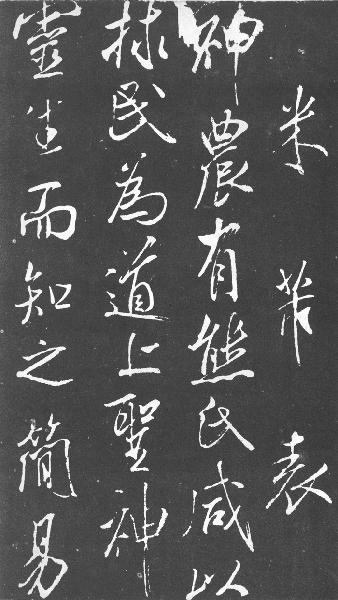 米芾表
神農有熊氏咸以
捄民為道上聖神
靈生而知之簡易